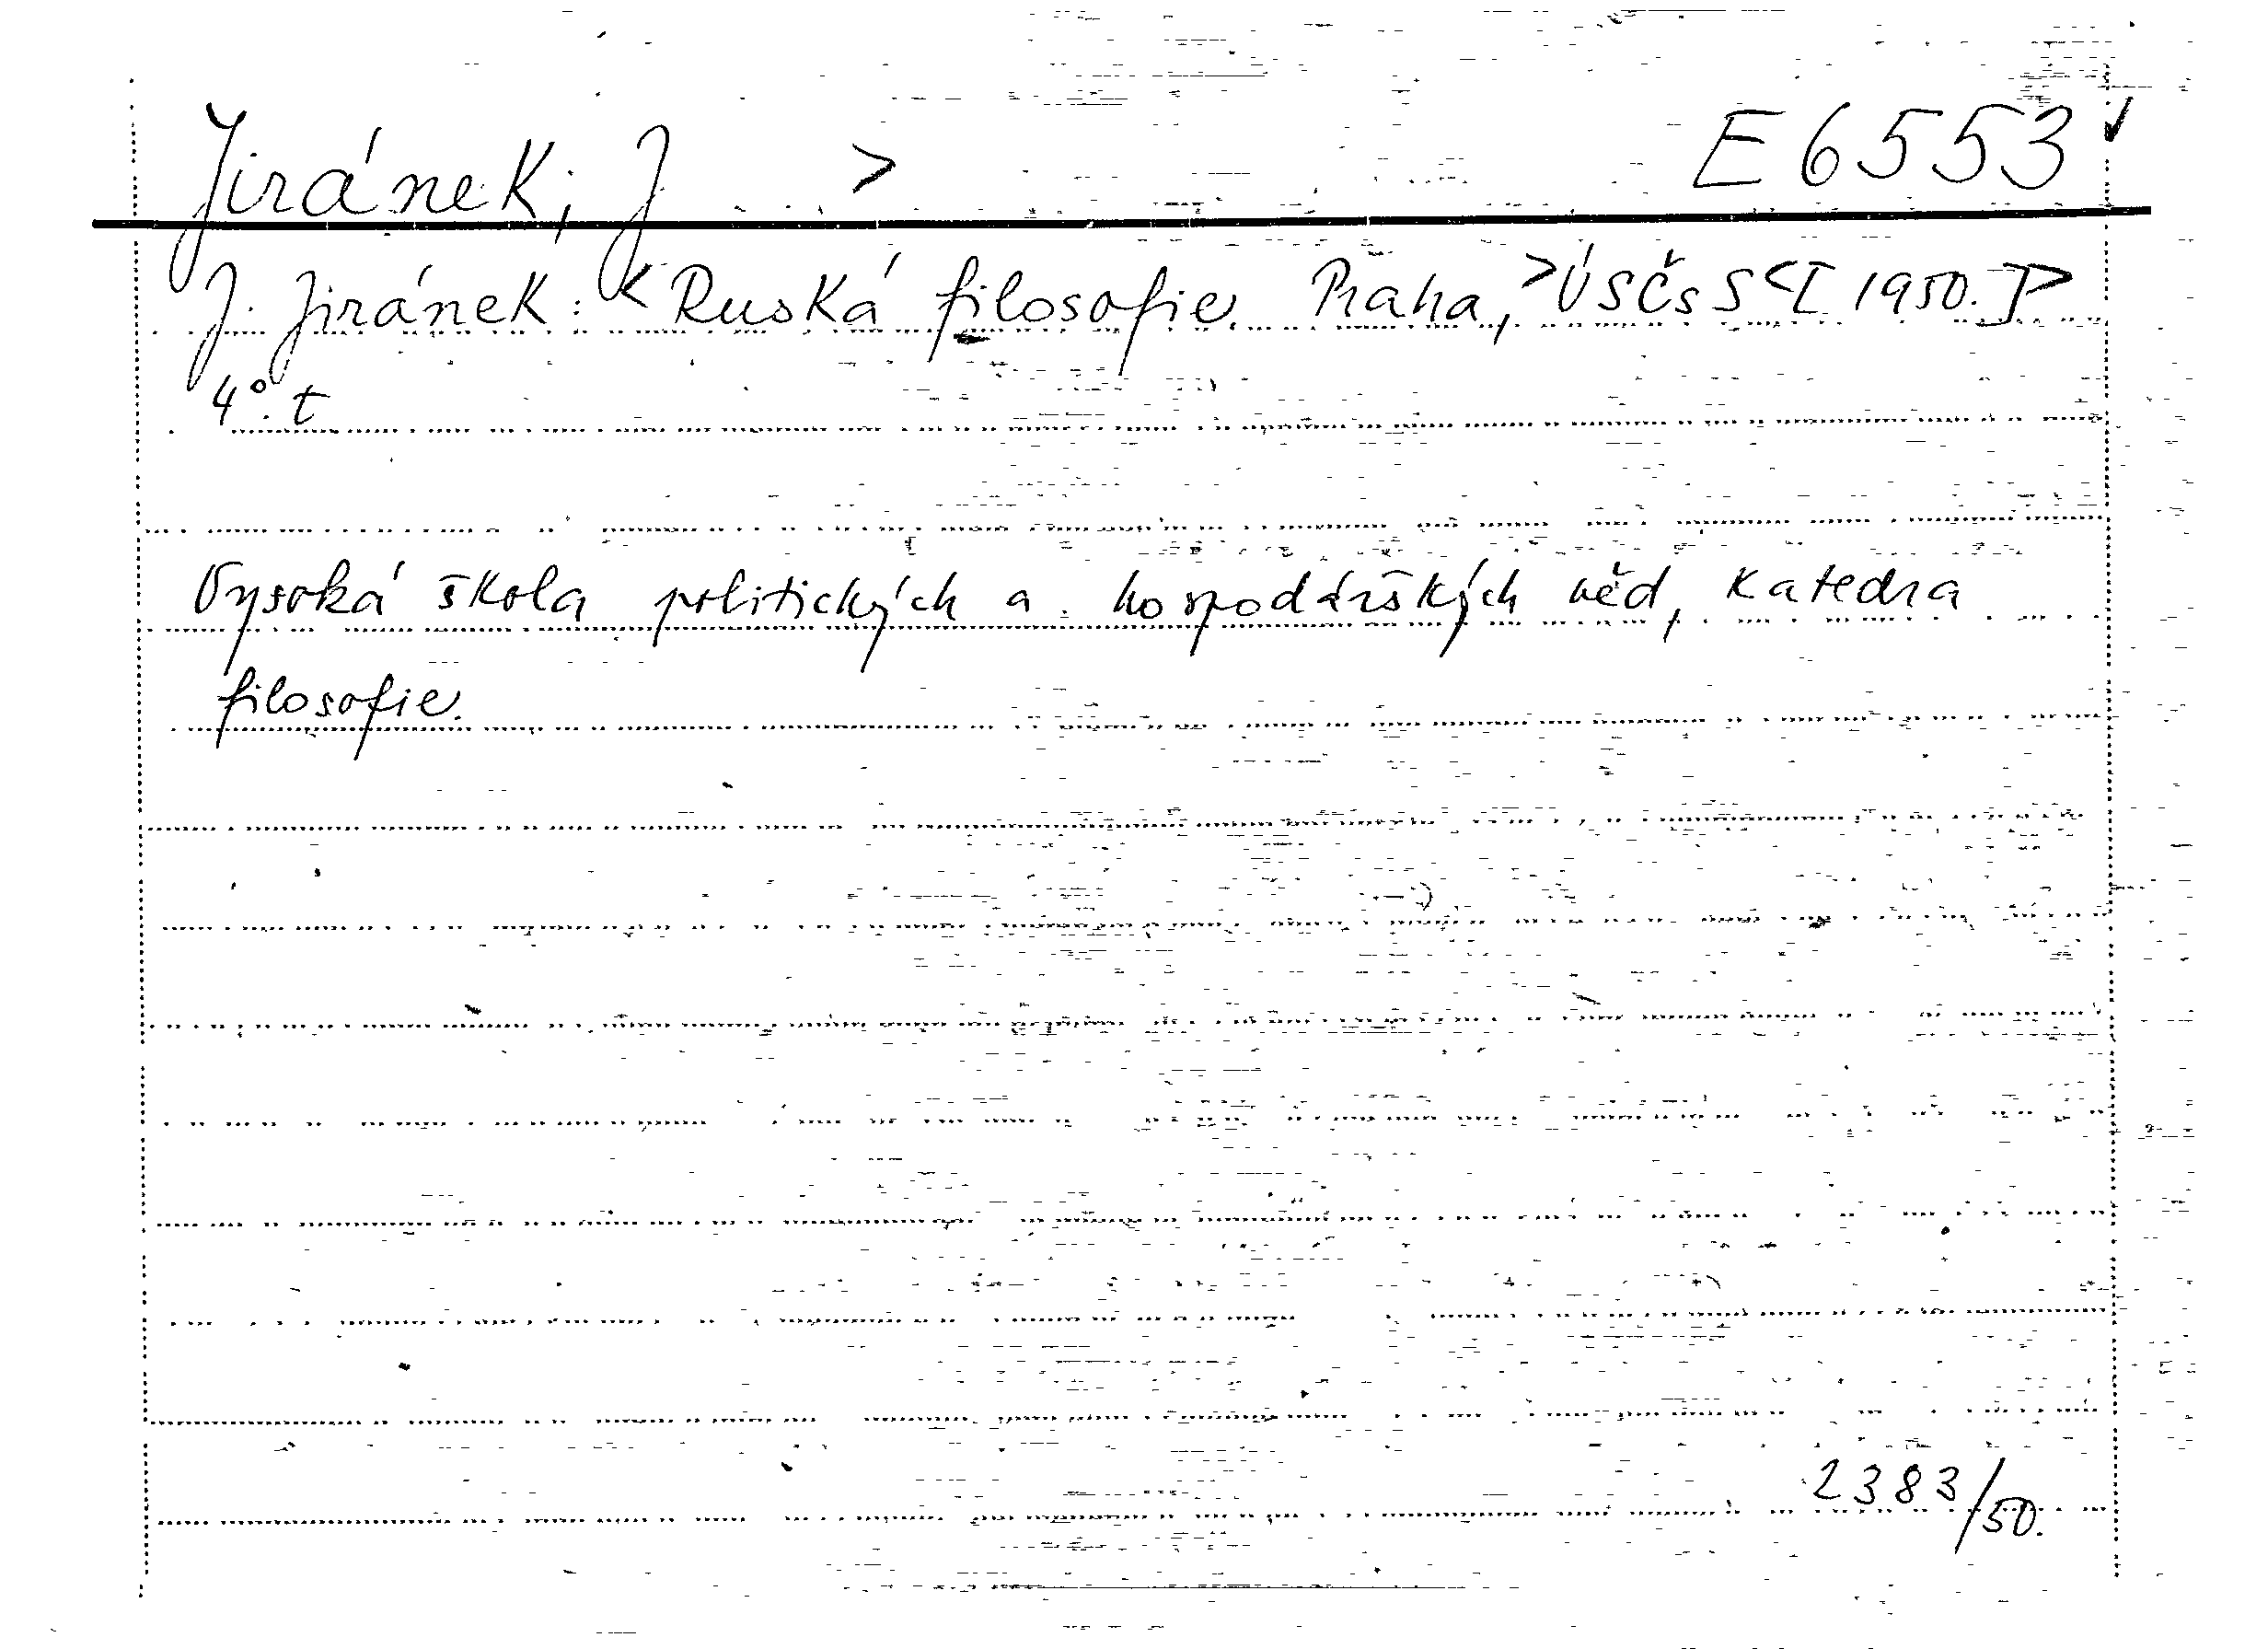 Jiránek, J. > E 6553
J. Jiránek: < Ruská filosofie. Praha, > ÚSČsS < [1950.] >
4°. t
Vysoká škola politických a hospodářských věd, Katedra
filosofie.
2383/50.